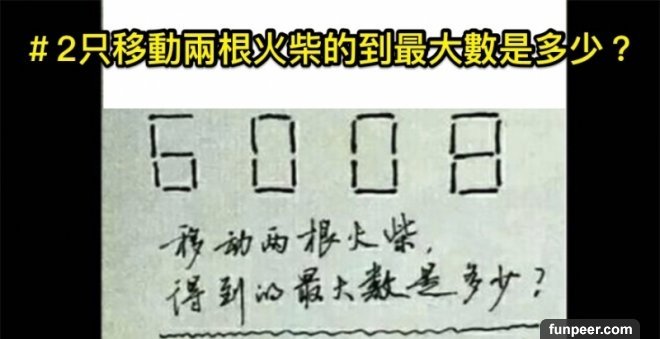 #2只移動兩根火柴的到最大數是多少？
6008
移动两根火柴，
得到的最大数是多少？
funpeer.com